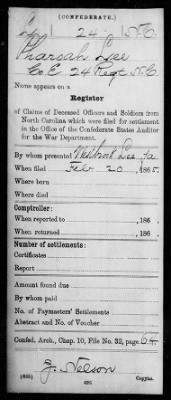 (CONFEDERATE.)
L 24 N.C.
Pharoah Lee
Co E, 24 Regt N.C.
Name appears on a
Register
of Claims of Deceased Officers and Soldiers from
North Carolina which were filed for settlement
in the Office of the Confederate States Auditor
for the War Department.
By whom presented Lee, fa
When filed Feb 20, 1865.
Where born
Where died
Comptroller:
When reported to , 186 .
When returned , 186 .
Number of settlements:
Certificates
Report
Amount found due
By whom paid
No. of Paymasters' Settlements
Abstract and No. of Voucher
Confed. Arch., Chap. 10, File No. 32, page 64
J. Nelson
Copyist.